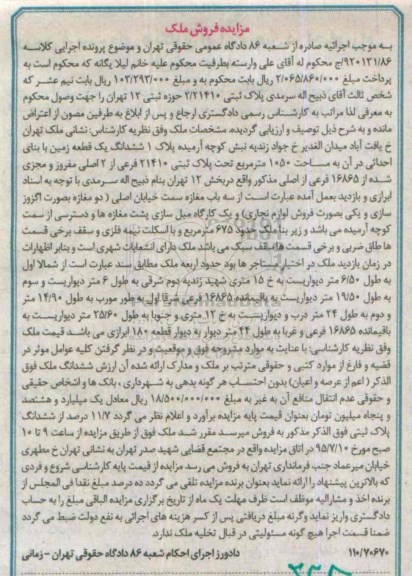 مزایده فروش ملک
به موجب اجرائیه صادره از شعبه ۸۶ دادگاه عمومی حقوقی تهران و موضوع پرونده اجرایی کلاسه
۹۲۰۱۳۱/۸۶/ج محکوم له آقای علی وارسته بطرفیت محکوم علیه خانم لیلا یگانه که محکوم است به
پرداخت مبلغ ۲/۰۶۵/۸۶۰/۰۰۰ ریال بابت محکوم به و مبلغ ۱۰۳/۲۹۳/۰۰۰ ریال بابت نیم عشر که
شخص ثالث آقای ذبیح اله سرمدی پلاک ثبتی ۲/۲۱۴۱۰ حوزه ثبتی ۱۲ تهران را جهت وصول محکوم
به معرفی لذا مراتب به کارشناس رسمی دادگستری ارجاع و پس از ابلاغ به طرفین مصون از اعتراض
مانده و به شرح ذیل توصیف و ارزیابی گردیده. مشخصات ملک وفق نظریه کارشناس: نشانی ملک تهران
خ یافت آباد میدان الغدیر خ جواد زندیه نبش کوچه آرمیده پلاک ۱ ششدانگ یک قطعه زمین با بنای
احداثی در آن به مساحت ۱۰۵۰ مترمربع تحت پلاک ثبتی ۲۱۴۱۰ فرعی از ۲ اصلی مفروز و مجزی
شده از ۱۶۸۶۵ فرعی از اصلی مذکور واقع در بخش ۱۲ تهران بنام ذبیح اله سرمدی با توجه به اسناد
ابرازی و بازدید بعمل آمده عبارت است از سه باب مغازه سمت خیابان اصلی ( دو مغازه بصورت اگزوز
سازی و یکی بصورت فروش لوازم نجاری) و یک کارگاه مبل سازی پشت مغازه ها و دسترسی از سمت
کوچه آرمیده می باشد و زیر بنا ملک حدود ۶۷۵ مترمربع و با اسکلت نیمه فلزی و سقف برخی قسمت
ها طاق ضربی و برخی قسمت ها سقف سبک می باشد ملک دارای انشعابات شهری است و بنابر اظهارات
در زمان بازدید ملک در اختیار مستاجر ها بود حدود اربعه ملک مطابق سند عبارت است از شمالا اول
به طول ۶/۵۰ متر دیواریست به خ ۱۵ متری شهید زندیه دوم شرقی به طول ۶ متر دیواریست و سوم
به طول ۱۹/۵۰ متر دیواریست به باقیمانده ۱۶۸۶۵ فرعی شرقا اول به طور مورب به طول ۱۴/۹۰ متر
و دوم به طول ۲۴ متر درب و دیواریست به خ ۱۲ متری و جنوبا به طول ۲۵/۶۰ متر دیواریست به
باقیمانده ۱۶۸۶۵ فرعی و غربا به طول ۴۴ متر دیوار به دیوار قطعه ۱۸۰ ابرازی می باشد. قیمت ملک
وفق نظریه کارشناسی: با عنایت به موارد مشروحه فوق و موقعیت و در نظر گرفتن کلیه عوامل موثر در
قضیه و فارغ از موارد کتبی و حقوقی مترتب بر ملک و مدارک ارائه شده آن ارزش ششدانگ ملک فوق
الذکر (اعم از عرصه و اعیان) بدون احتساب هر گونه بدهی به شهرداری ، بانک ها و اشخاص حقیقی
و حقوقی عدم انتقال منافع آن به غیر به مبلغ ۱۸/۵۰۰/۰۰۰/۰۰۰ ریال معادل یک میلیارد و هشتصد
و پنجاه میلیون تومان بعنوان قیمت پایه مزایده برآورد و اعلام نظر می گردد ۱۱/۷ درصد از ششدانگ
پلاک ثبتی فوق الذکر مذکور به فروش میرسد مقرر شد ملک فوق از طریق مزایده از ساعت ۹ تا ۱۰
صبح مورخ ۹۵/۷/۱۰ در اتاق مزایده واقع در مجتمع قضایی شهید صدر تهران به نشانی تهران خ مطهری
خیابان میرعماد جنب فرمانداری تهران به فروش می رسد مزایده از قیمت پایه کارشناسی شروع و فردی
که بالاترین پیشنهاد را ارائه نماید بعنوان برنده مزایده تلقی می گردد ده درصد مبلغ نقدا فی المجلس از
برنده اخذ و مشارالیه موظف است ظرف مهلت یک ماه از تاریخ برگزاری مزایده الباقی مبلغ را به حساب
دادگستری واریز نماید وگرنه مبلغ دریافتی پس از کسر هزینه های اجرائی به نفع دولت ضبط می گردد
ضمنا قسمت اجرا هیچ گونه مسئولیتی در قبال تخلیه ملک ندارد.
۱۱۰/۷۰۶۷۰ دادورز اجرای احکام شعبه ۸۶ دادگاه حقوقی تهران - زمانی